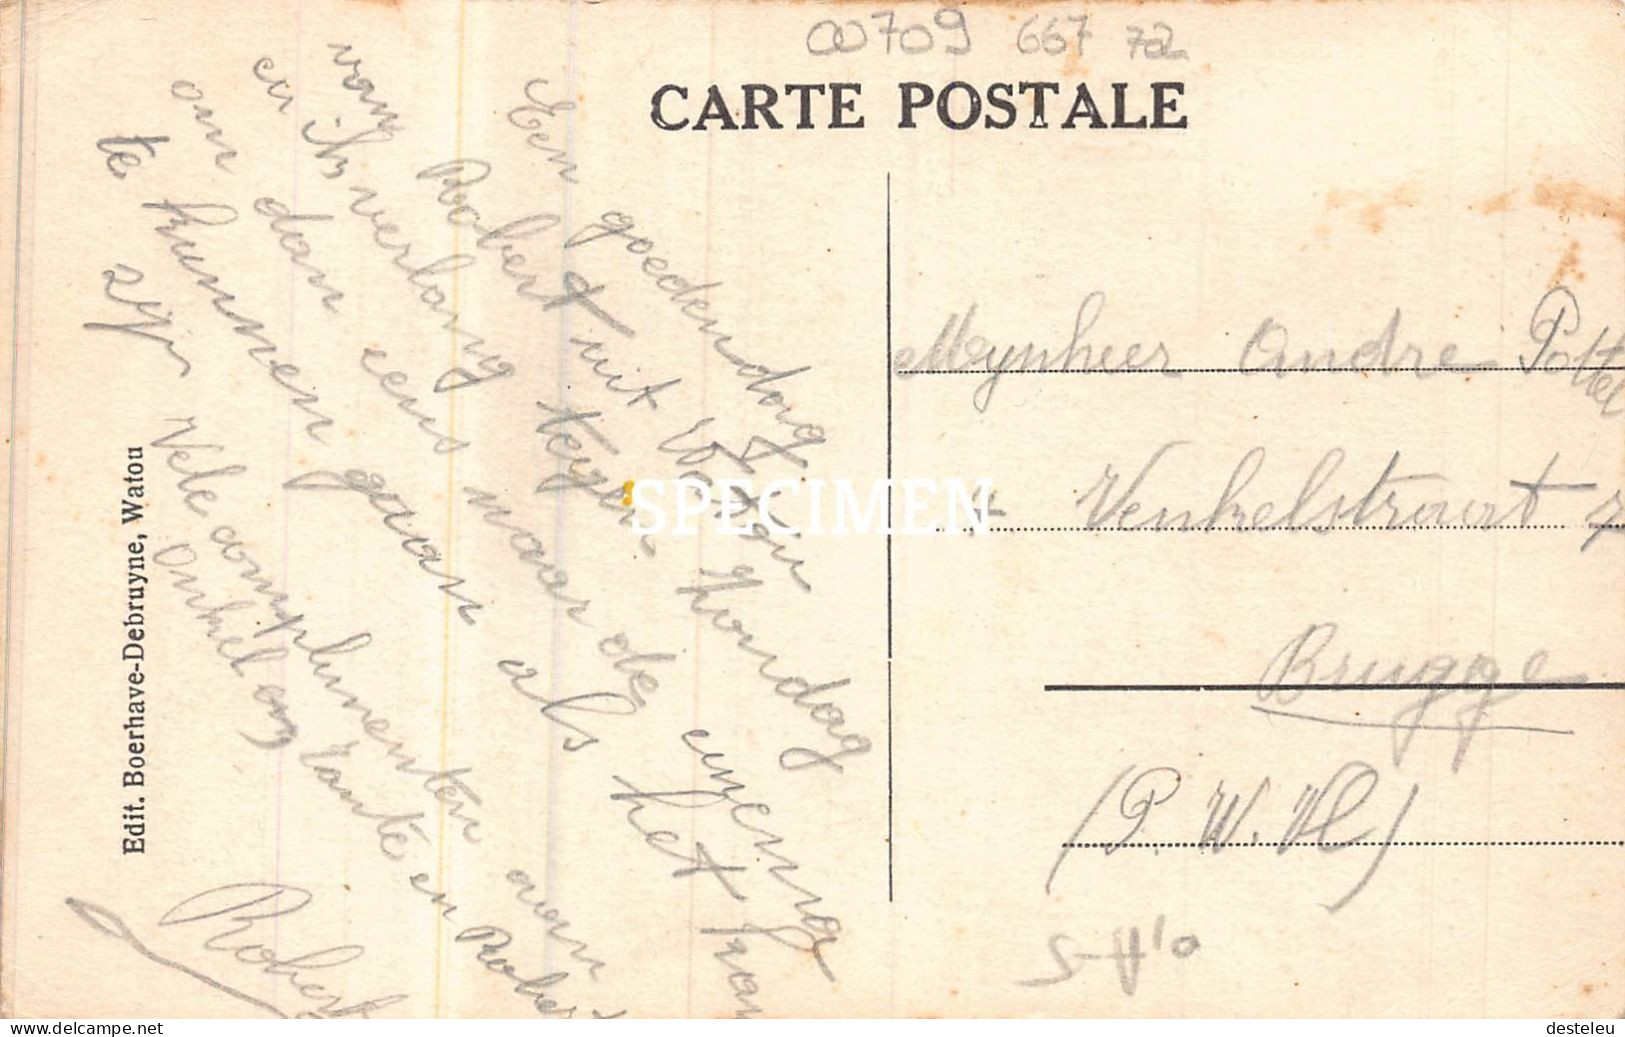 00709 667 72
CARTE POSTALE
Een goedendag
van Robert uit Watou Zondag
en ik verlang tegen
om dan eens naar de
te kunnen gaan als het
zijn Vele complimenten aan
Onkel en Tante en Robert
Robert
Edit. Boerhave-Debruyne, Watou
Mynheer Andre Pottel
Venkelstraat 7
Brugge
(P. W. Vl)
SPECIMEN
www.delcampe.net
desteleu